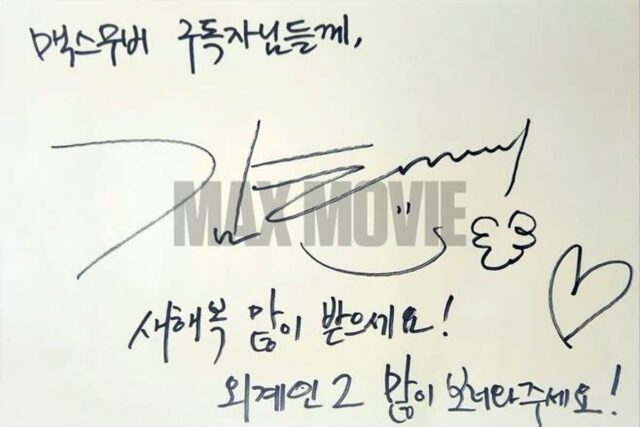 맥스무비 구독자님들께,
MAX MOVIE
새해복 많이 받으세요!
외계인2 많이 보러와주세요!